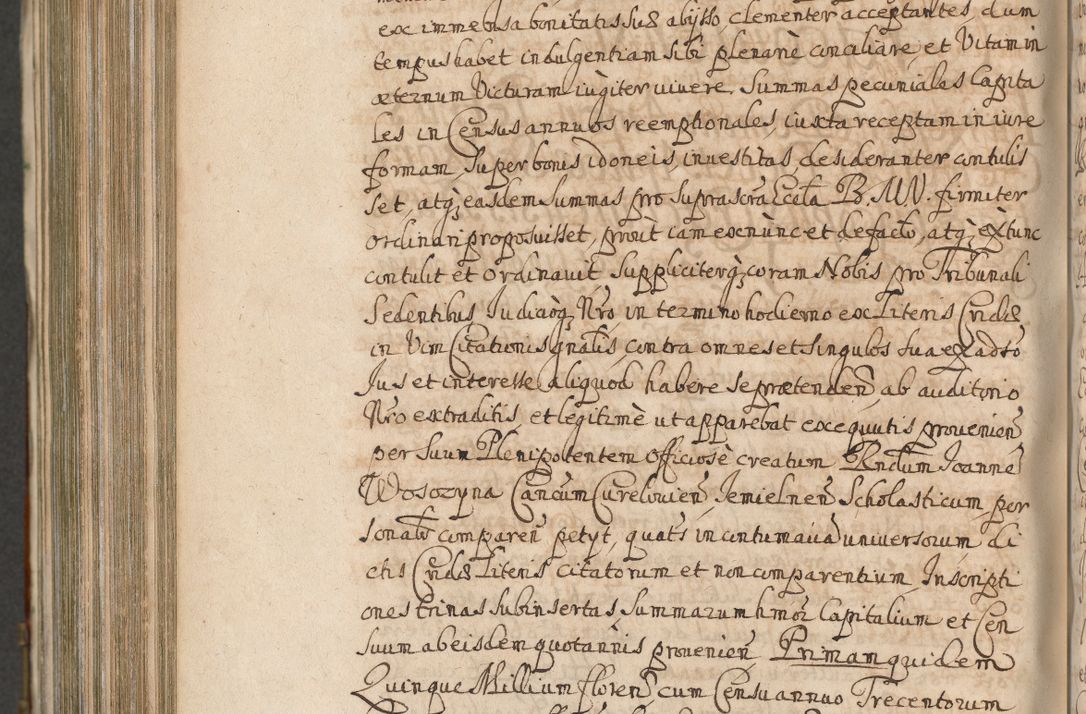 ex immensa bonitatis suæ abysso, clementer acceptantes, dum
tempus habet indulgentiam sibi plenariè conciliare, et Vitam in
æternum Victuram iùgiter viuere, Summas pecuniales Capita
les in Census annuos reemptionales, iuxta receptam in iure
formam, super bonis idoneis, inuestitas, desideranter contulis
set, atq; easdem summas pro suprascrã Eccla B. MV. firmiter
ordinari proposuisset, prout eam ex nùnc et de facto, atq; ex tunc
contulit et ordinauit, suppliciterq; coram Nobis pro Tribunali
Sedentibus Judicioq; Nrõ in termino hodierno ex Literis Cridæ
in Vim Citationis gnalis, contra omnes et singulos sua ex adso
Jus et interesse aliquod habere se prætenden, ab auditorio
Nrõ extraditis, et legitimè ut apparebat exequutis prouenien
per suum Plenipotentem officiosè creatum Rndum Joannẽ
Wosozyna Cancum Curelouien, Jemielnen Scholasticum, per
sonalr comparen petyt, quats in contumatia uniuersorum di
ctis Cridæ Literis citatorum et non comparentium, Inscripti
ones trinas subinsertas, Summarum hmoi Capitalium et Cen
suum ab eisdem quotannis prouenien Primam quidem
Quinque Millium floren, cum Censu annuo Trecentorum